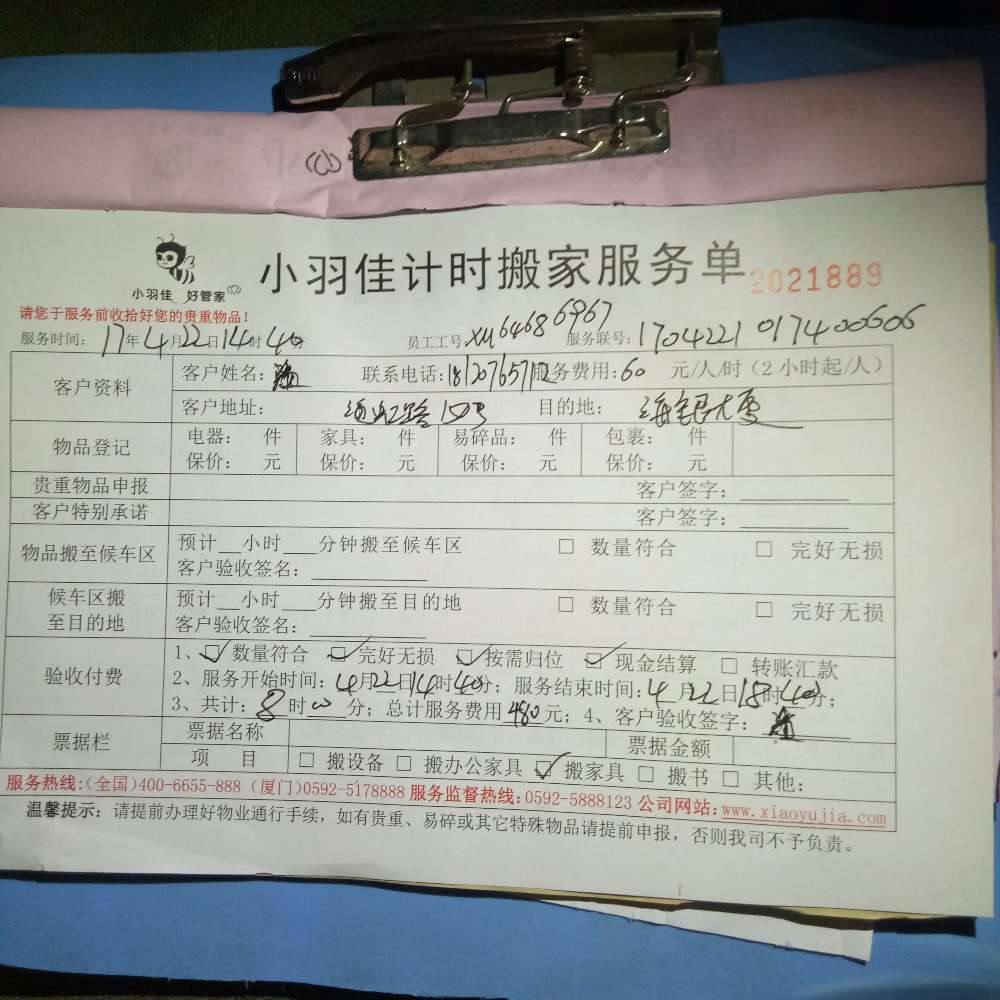 小羽佳 好管家
小羽佳计时搬家服务单 2021889
请您于服务前收拾好您的贵重物品！
服务时间：17年4月22日14时40分 员工工号：XM64686967 服务联号：1704221017400606
客户资料 客户姓名： 联系电话： 服务费用：60 元/人/时（2小时起/人）
客户地址： 目的地：海银大厦
物品登记 电器： 件 家具： 件 易碎品： 件 包裹： 件
保价： 元 保价： 元 保价： 元 保价： 元
贵重物品申报 客户签字：
客户特别承诺 客户签字：
物品搬至候车区 预计__小时___分钟搬至候车区 □ 数量符合 □ 完好无损
客户验收签名：
候车区搬至目的地 预计__小时___分钟搬至目的地 □ 数量符合 □ 完好无损
客户验收签名：
验收付费 1、☑数量符合 ☑完好无损 ☑按需归位 ☑现金结算 □ 转账汇款
2、服务开始时间：4月22日14时40分；服务结束时间：4月22日18时40分；
3、共计：8时00分；总计服务费用480元；4、客户验收签字：
票据栏 票据名称 票据金额
项 目 □ 搬设备 □ 搬办公家具 ☑ 搬家具 □ 搬书 □ 其他：
服务热线：(全国)400-6655-888 (厦门)0592-5178888 服务监督热线：0592-5888123 公司网站：www.xiaoyujia.com
温馨提示：请提前办理好物业通行手续，如有贵重、易碎或其它特殊物品请提前申报，否则我司不予负责。